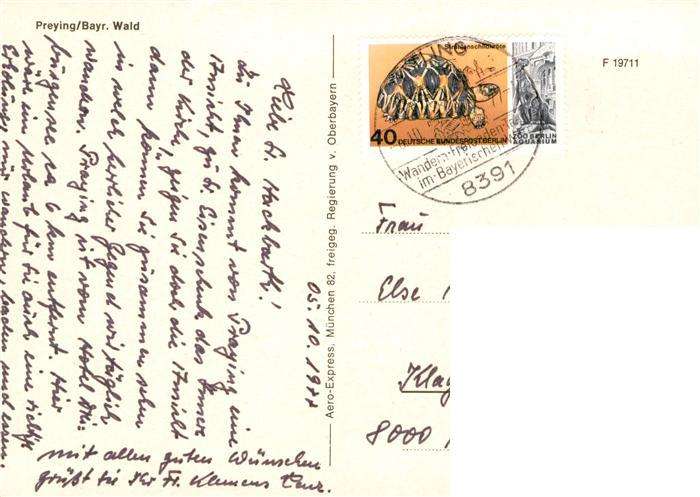 Preying/Bayr. Wald
F 19711
Strahlenschildkröte
40 DEUTSCHE BUNDESPOST BERLIN
ZOO BERLIN
AQUARIUM
Wandern
im Bayerischen
8391
Aero-Express, München 82, freigeg. Regierung v. Oberbayern
05.10.1977
Liebe Fr. Hachbarth!
zu Ihnen kommt von Preying eine
Ansicht, Fr. Eisenschenk das Innere
der Kirche, zeigen Sie doch die Ansicht
dann können Sie zusammen sehen
in welch herrlicher Gegend wir täglich
wandern. Preying ist vom Hotel
ca 6 km entfernt. Hier
wäre ein Urlaub für Sie auch eine richtige
Erholung, mit wandern, baden und
mit allen guten Wünschen
grüßt Sie Ihr Fr. Klemens
Frau
Else
Klag
8000